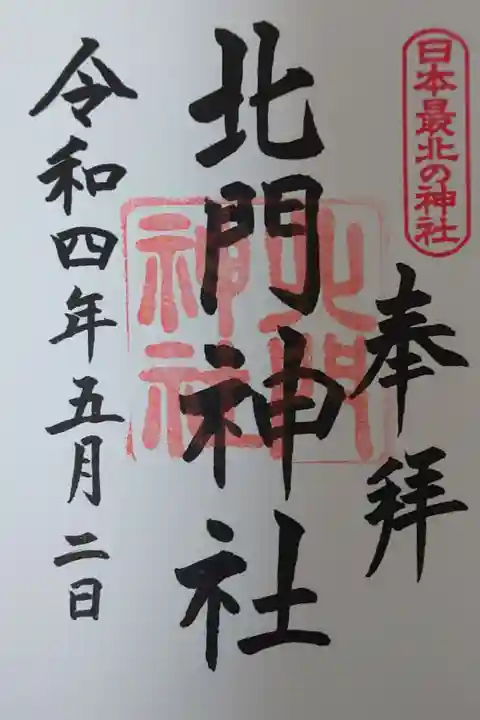 日本最北の神社
奉拝
北門神社
北門
神社
令和四年五月二日